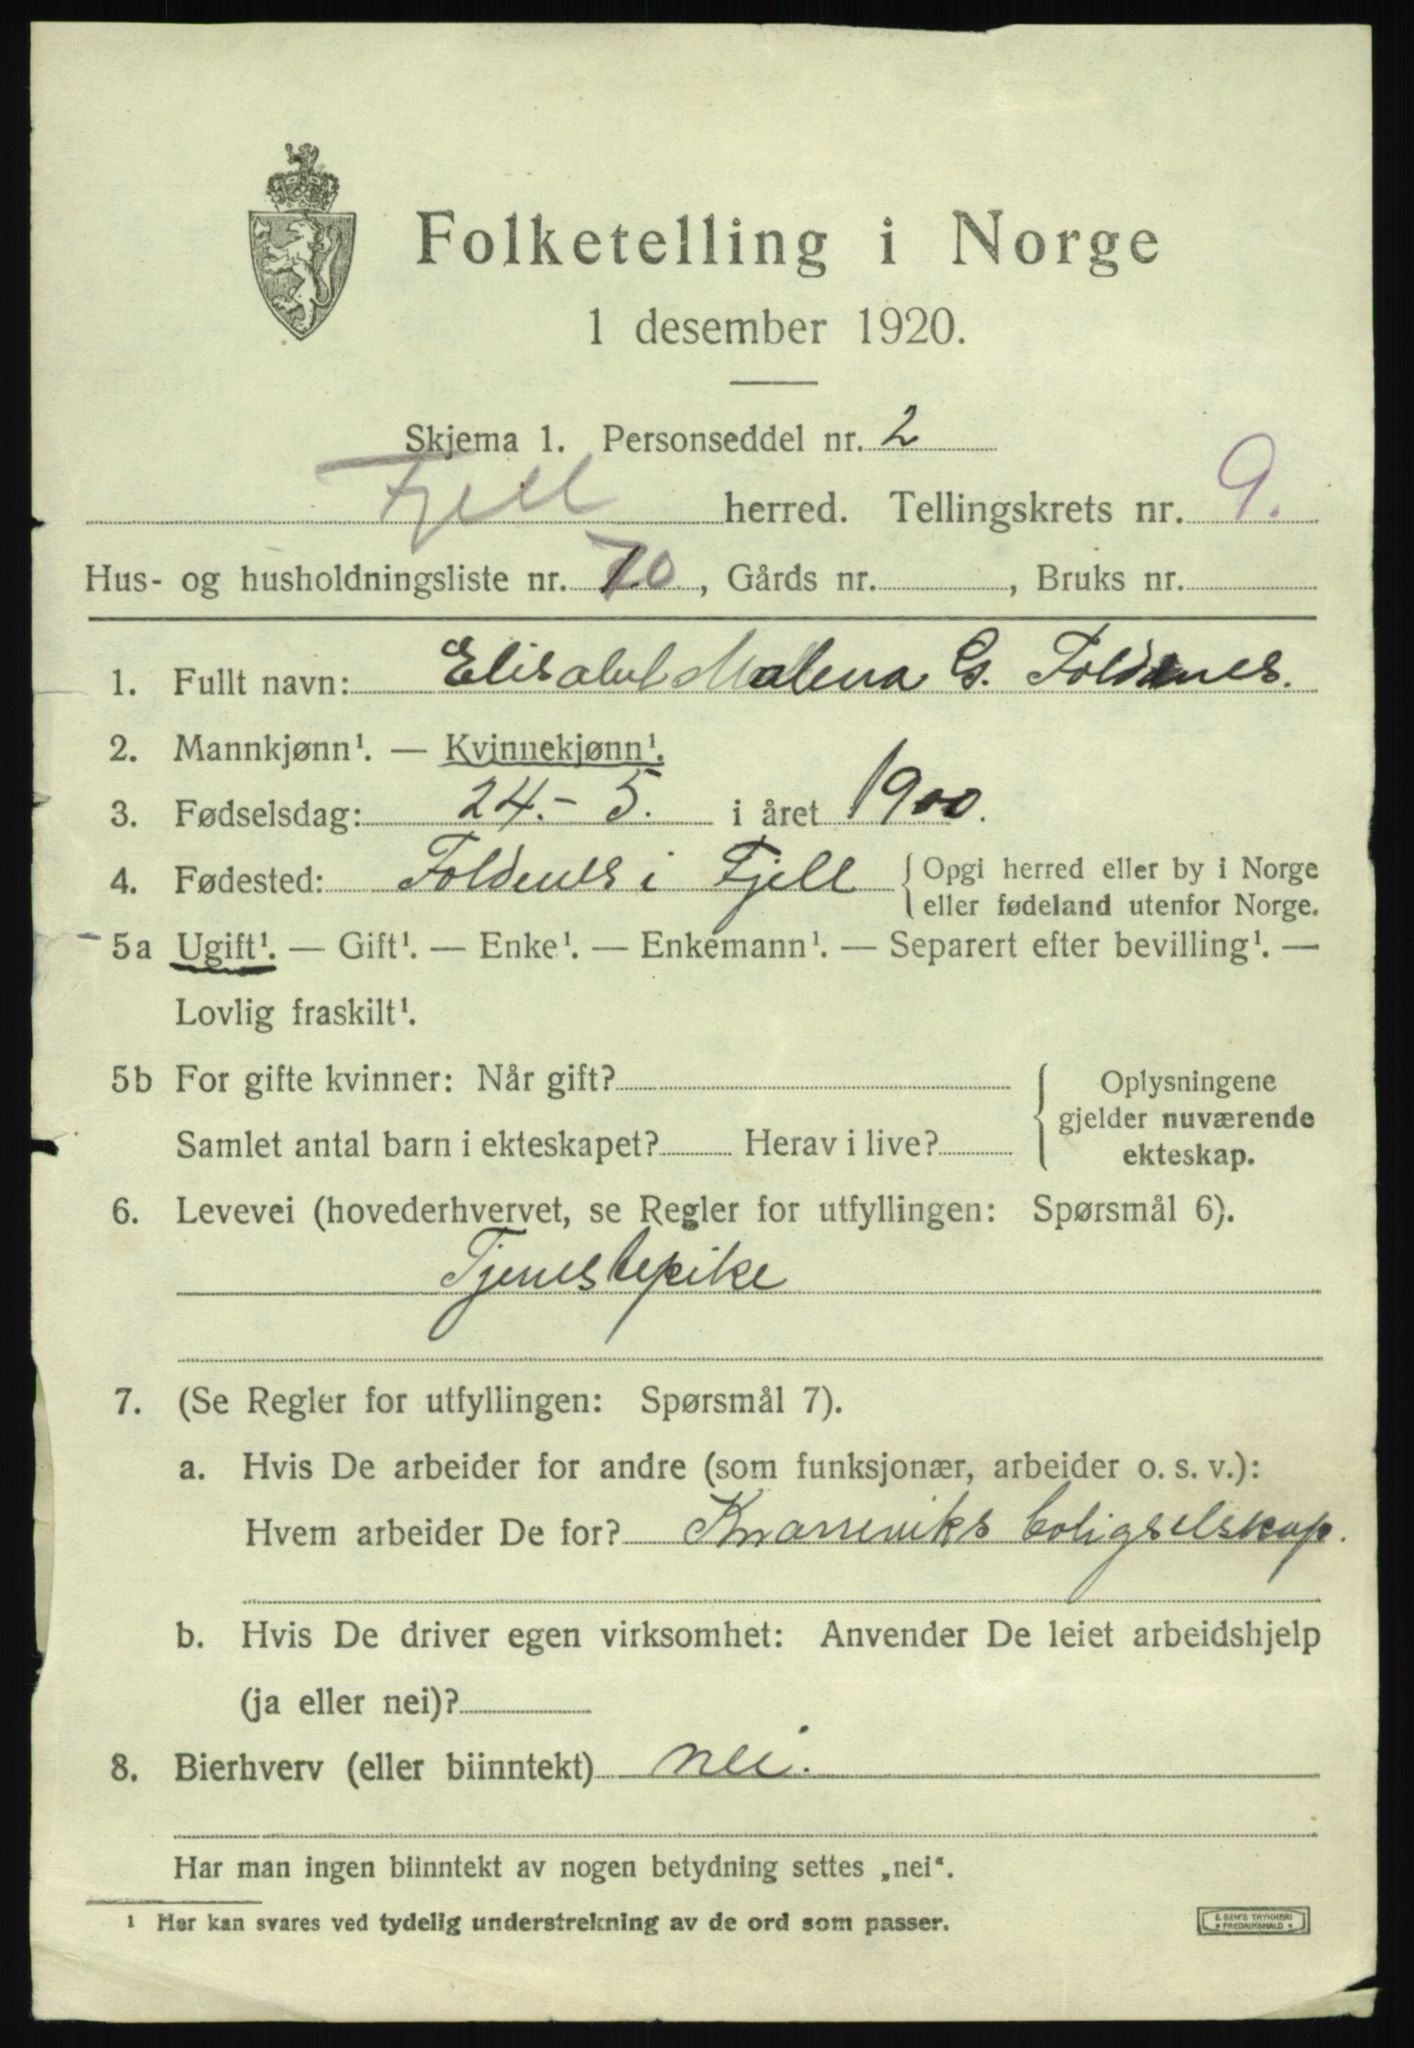 Folketelling i Norge
1 desember 1920.
Skjema 1. Personseddel nr. 2
Fjell herred. Tellingskrets nr. 9.
Hus- og husholdningsliste nr. 70, Gårds nr. , Bruks nr.
1. Fullt navn: Elisabet Malena G. Foldnes.
2. Mannkjønn¹. — Kvinnekjønn¹.
3. Fødselsdag: 24. - 5. i året 1900.
4. Fødested: Foldenes i Fjell { Opgi herred eller by i Norge
eller fødeland utenfor Norge.
5a Ugift¹. — Gift¹. — Enke¹. — Enkemann¹. — Separert efter bevilling¹. —
Lovlig fraskilt¹.
5b For gifte kvinner: Når gift?
Samlet antal barn i ekteskapet? Herav i live?
{ Oplysningene
gjelder nuværende
ekteskap.
6. Levevei (hovederhvervet, se Regler for utfyllingen: Spørsmål 6).
Tjenestepike
7. (Se Regler for utfyllingen: Spørsmål 7).
a. Hvis De arbeider for andre (som funksjonær, arbeider o. s. v.):
Hvem arbeider De for? Knarreviks boligselskap.
b. Hvis De driver egen virksomhet: Anvender De leiet arbeidshjelp
(ja eller nei)?
8. Bierhverv (eller biinntekt) nei.
Har man ingen biinntekt av nogen betydning settes „nei“.
¹ Her kan svares ved tydelig understrekning av de ord som passer.
E SEM'S TRYKKERI
* FREDRIKSHALD *